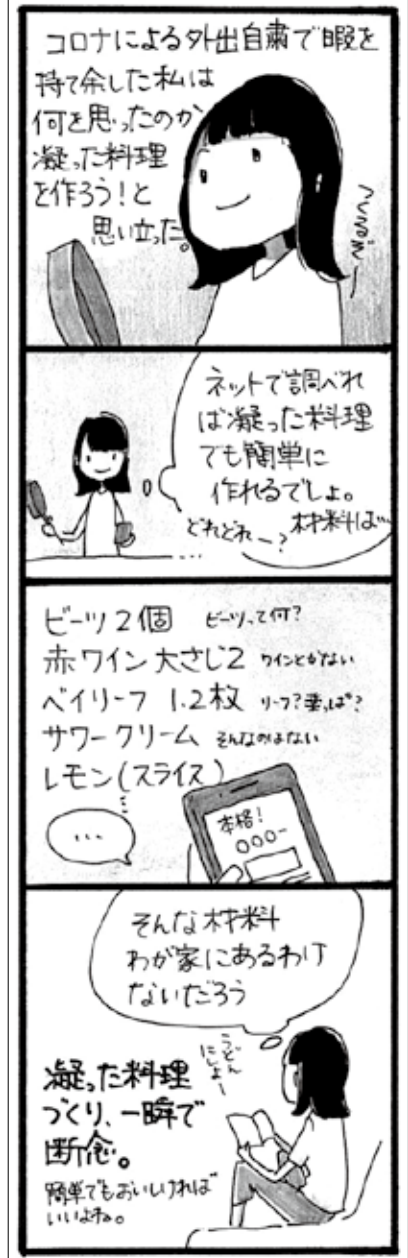 コロナによる外出自粛で暇を
持て余した私は
何を思ったのか
凝った料理
を作ろう!と
思い立った。
つくるぞ〜
ネットで調べれ
ば凝った料理
でも簡単に
作れるでしょ。
どれどれー?材料は…
ビーツ2個 ビーツって何?
赤ワイン 大さじ2 ワインとかない
ベイリーフ 1.2枚 リーフ?葉っぱ?
サワークリーム そんなのはない
レモン(スライス)
…
本格!
○○○ー
そんな材料
わが家にあるわけ
ないだろう
うどん
にしよー
凝った料理
づくり、一瞬で
断念。
簡単でもおいしければ
いいよね。